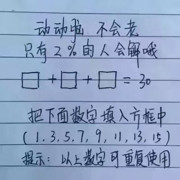 动动脑 不会老
只有2%的人会解哦
□+□+□=30
把下面数字填入方框中
(1.3.5.7.9,11,13,15)
提示: 以上数字可重复使用